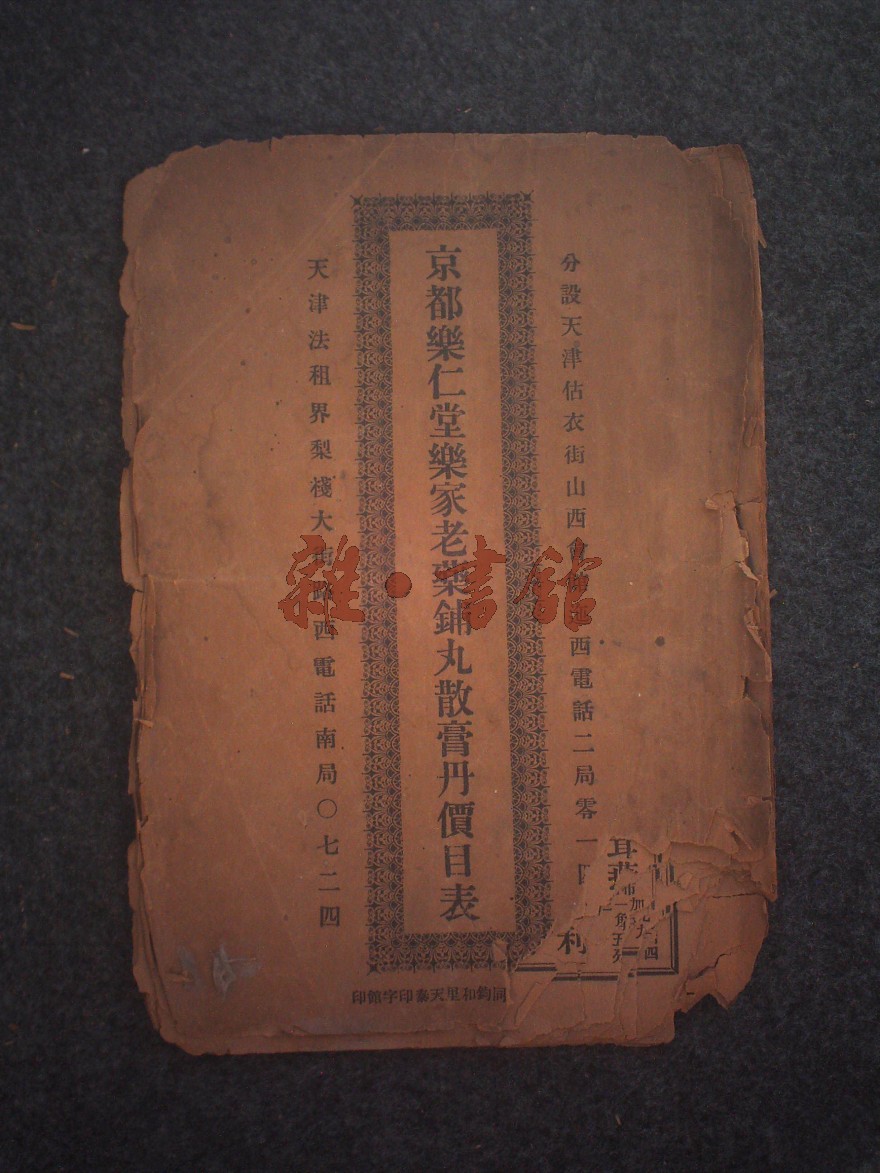 分設天津估衣街山西會 西電話二局零一
京都樂仁堂樂家老藥鋪丸散膏丹價目表
天津法租界梨棧大街路西電話南局〇七二四
印館字印泰天里和鈞同
利
雜·書館